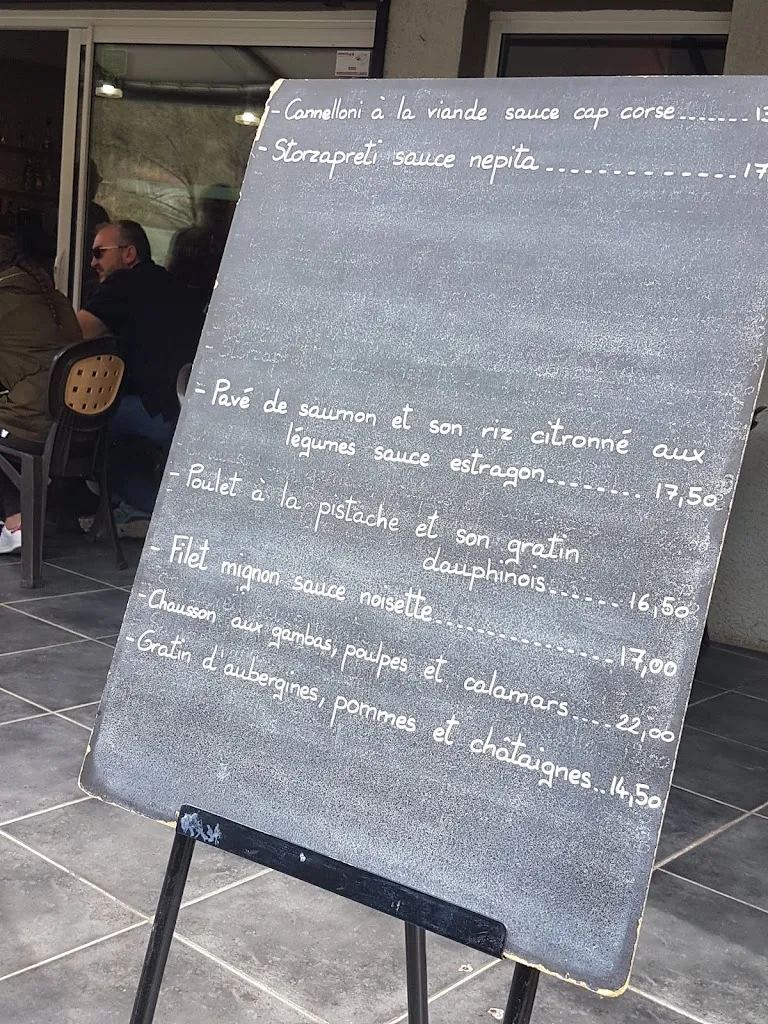 - Cannelloni à la viande sauce cap corse....... 13
- Storzapreti sauce nepita............... 17
- Pavé de saumon et son riz citronné aux
légumes sauce estragon........ 17,50
- Poulet à la pistache et son gratin
dauphinois....... 16,50
- Filet mignon sauce noisette.................. 17,00
- Chausson aux gambas, poulpes et calamars..... 22,00
- Gratin d'aubergines, pommes et châtaignes.. 14,50